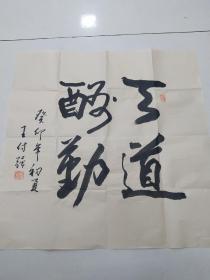 天道
酬勤
癸卯年初夏
王付强